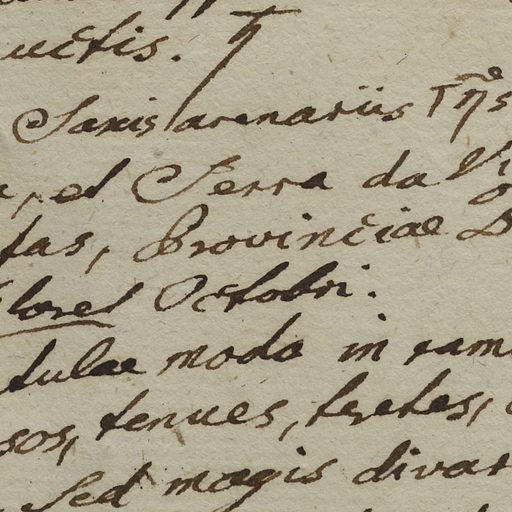 uctis. ℏ
Saxis arenariis
et Serra da Vi
tas, Provinciae
Floret Octobri.
tulae modo in ram
sos, tenues, teretes,
Sed magis divar